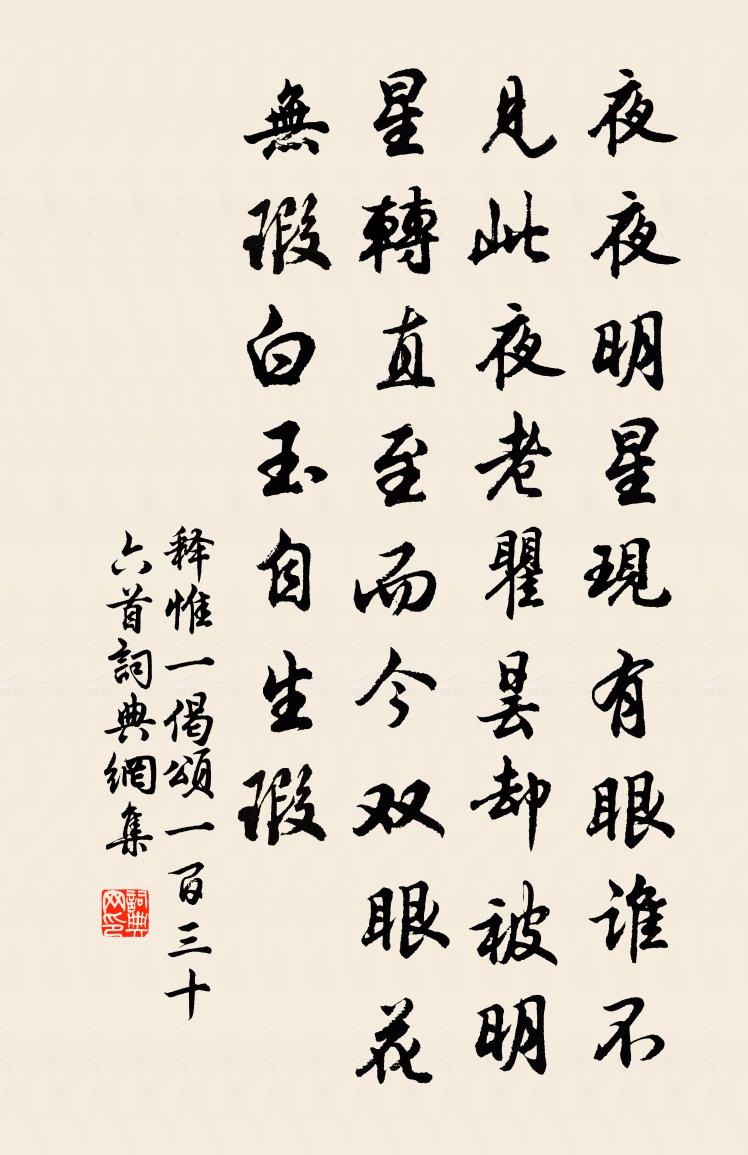 夜夜明星現有眼谁不
見此夜老瞿曇却被明
星轉直至而今双眼花
無瑕白玉自生瑕
释惟一偈頌一百三十
六首詞典網集
詞典网印